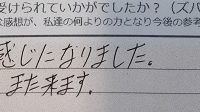 受けられていかがでしたか？（ズバ
な感想が、私達の何よりの力となり今後の参考
感じになりました。
また来ます。